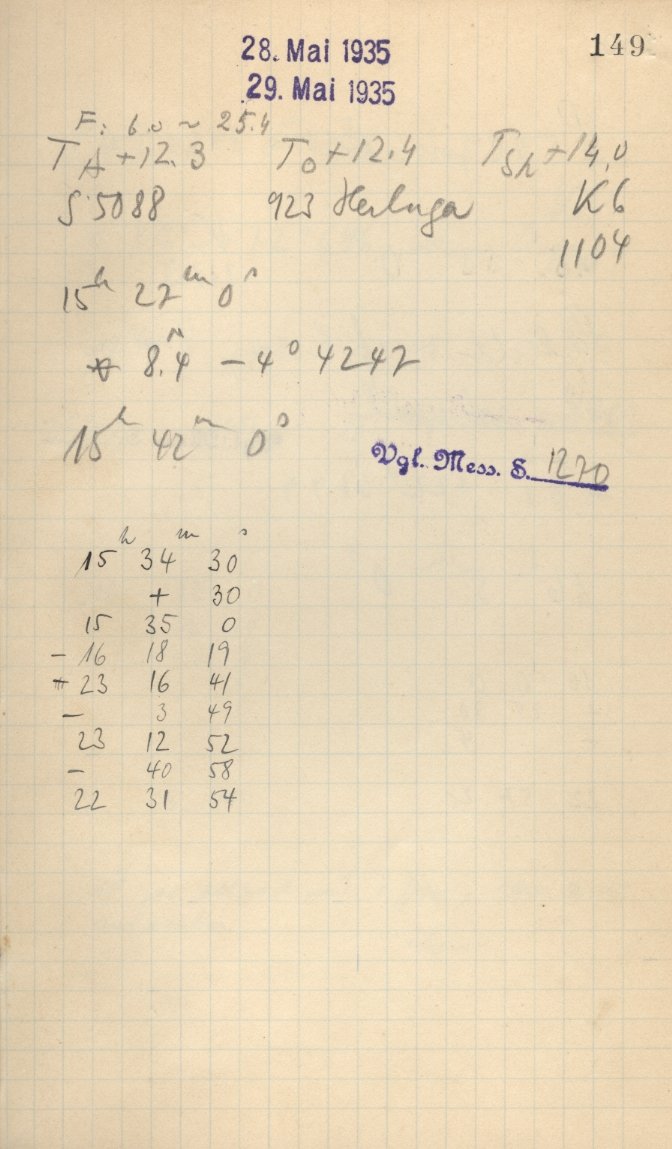 28. Mai 1935
149
29. Mai 1935
F: 6.0 ~ 25.4
T_A +12.3 T_O +12.4 T_Sh +14.0
S 5088 923 Herluga K6
1104
15h 27m 0s
* 8.m4 - 4° 4247
15h 42m 0s
Vgl. Mess. S. 1270
h m s
15 34 30
+ 30
15 35 0
- 16 18 19
+ 23 16 41
- 3 49
23 12 52
- 40 58
22 31 54